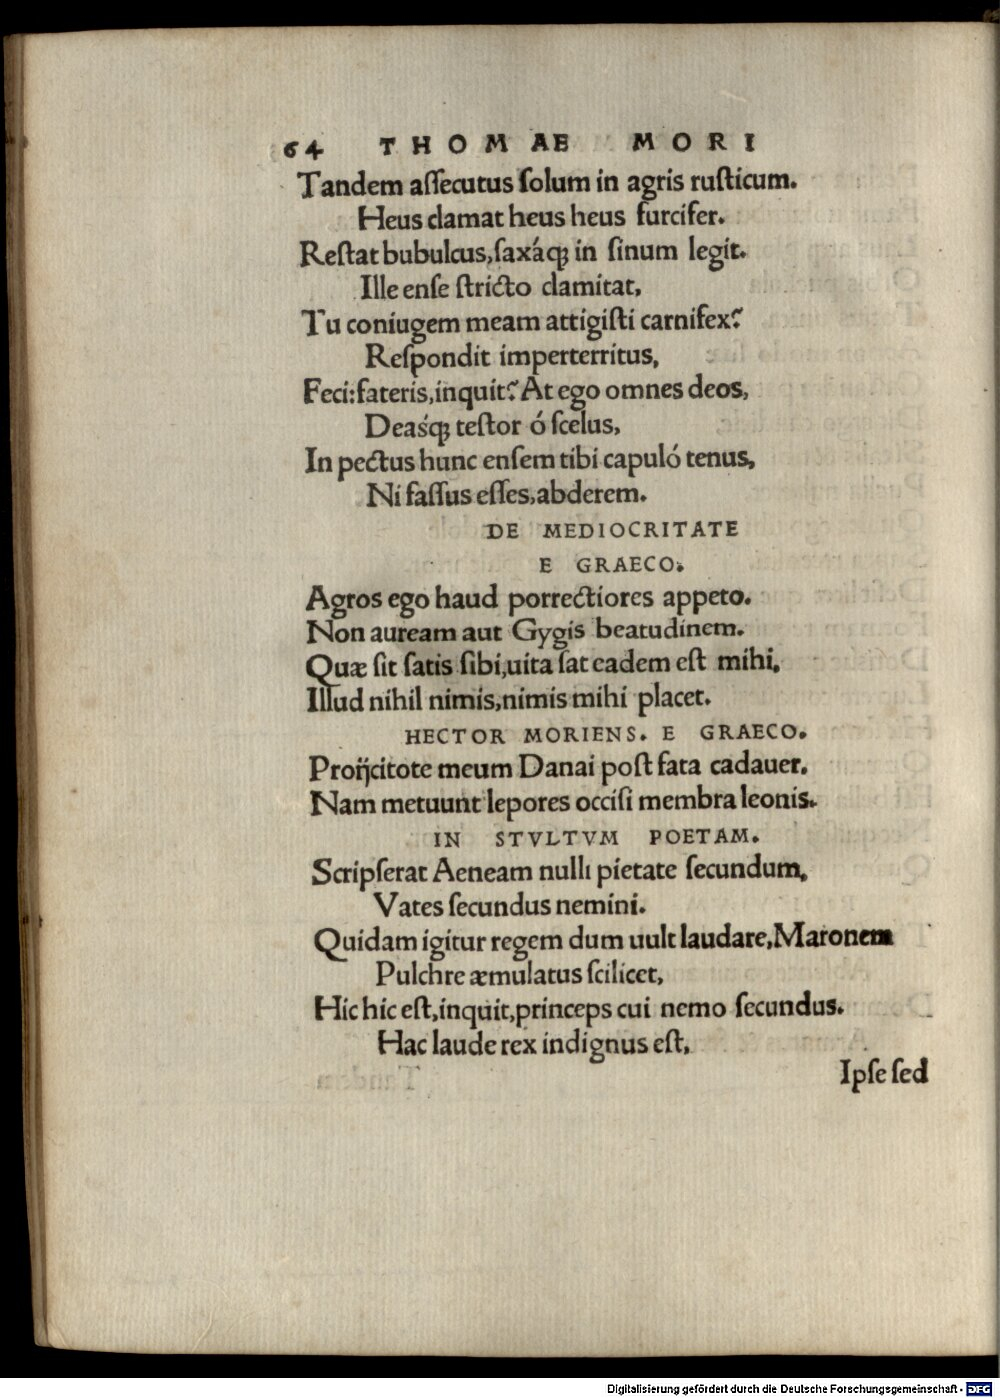 64 THOMAE MORI
Tandem aſſecutus ſolum in agris ruſticum.
Heus clamat heus heus furcifer.
Reſtat bubulcus, ſaxáqꝫ in ſinum legit.
Ille enſe ſtricto clamitat,
Tu coniugem meam attigiſti carnifex?
Reſpondit imperterritus,
Feci: fateris, inquit? At ego omnes deos,
Deaśqꝫ teſtor ó ſcelus,
In pectus hunc enſem tibi capuló tenus,
Ni faſſus eſſes, abderem.
DE MEDIOCRITATE
E GRAECO.
Agros ego haud porrectiores appeto.
Non auream aut Gygis beatudinem.
Quæ ſit ſatis ſibi, uita ſat eadem eſt mihi,
Illud nihil nimis, nimis mihi placet.
HECTOR MORIENS. E GRAECO.
Proijcitote meum Danai poſt fata cadauer.
Nam metuunt lepores occiſi membra leonis.
IN STVLTVM POETAM.
Scripſerat Aeneam nulli pietate ſecundum,
Vates ſecundus nemini.
Quidam igitur regem dum uult laudare, Maronem
Pulchre æmulatus ſcilicet,
Hic hic eſt, inquit, princeps cui nemo ſecundus.
Hac laude rex indignus eſt,
Ipſe ſed
Digitalisierung gefördert durch die Deutsche Forschungsgemeinschaft - DFG